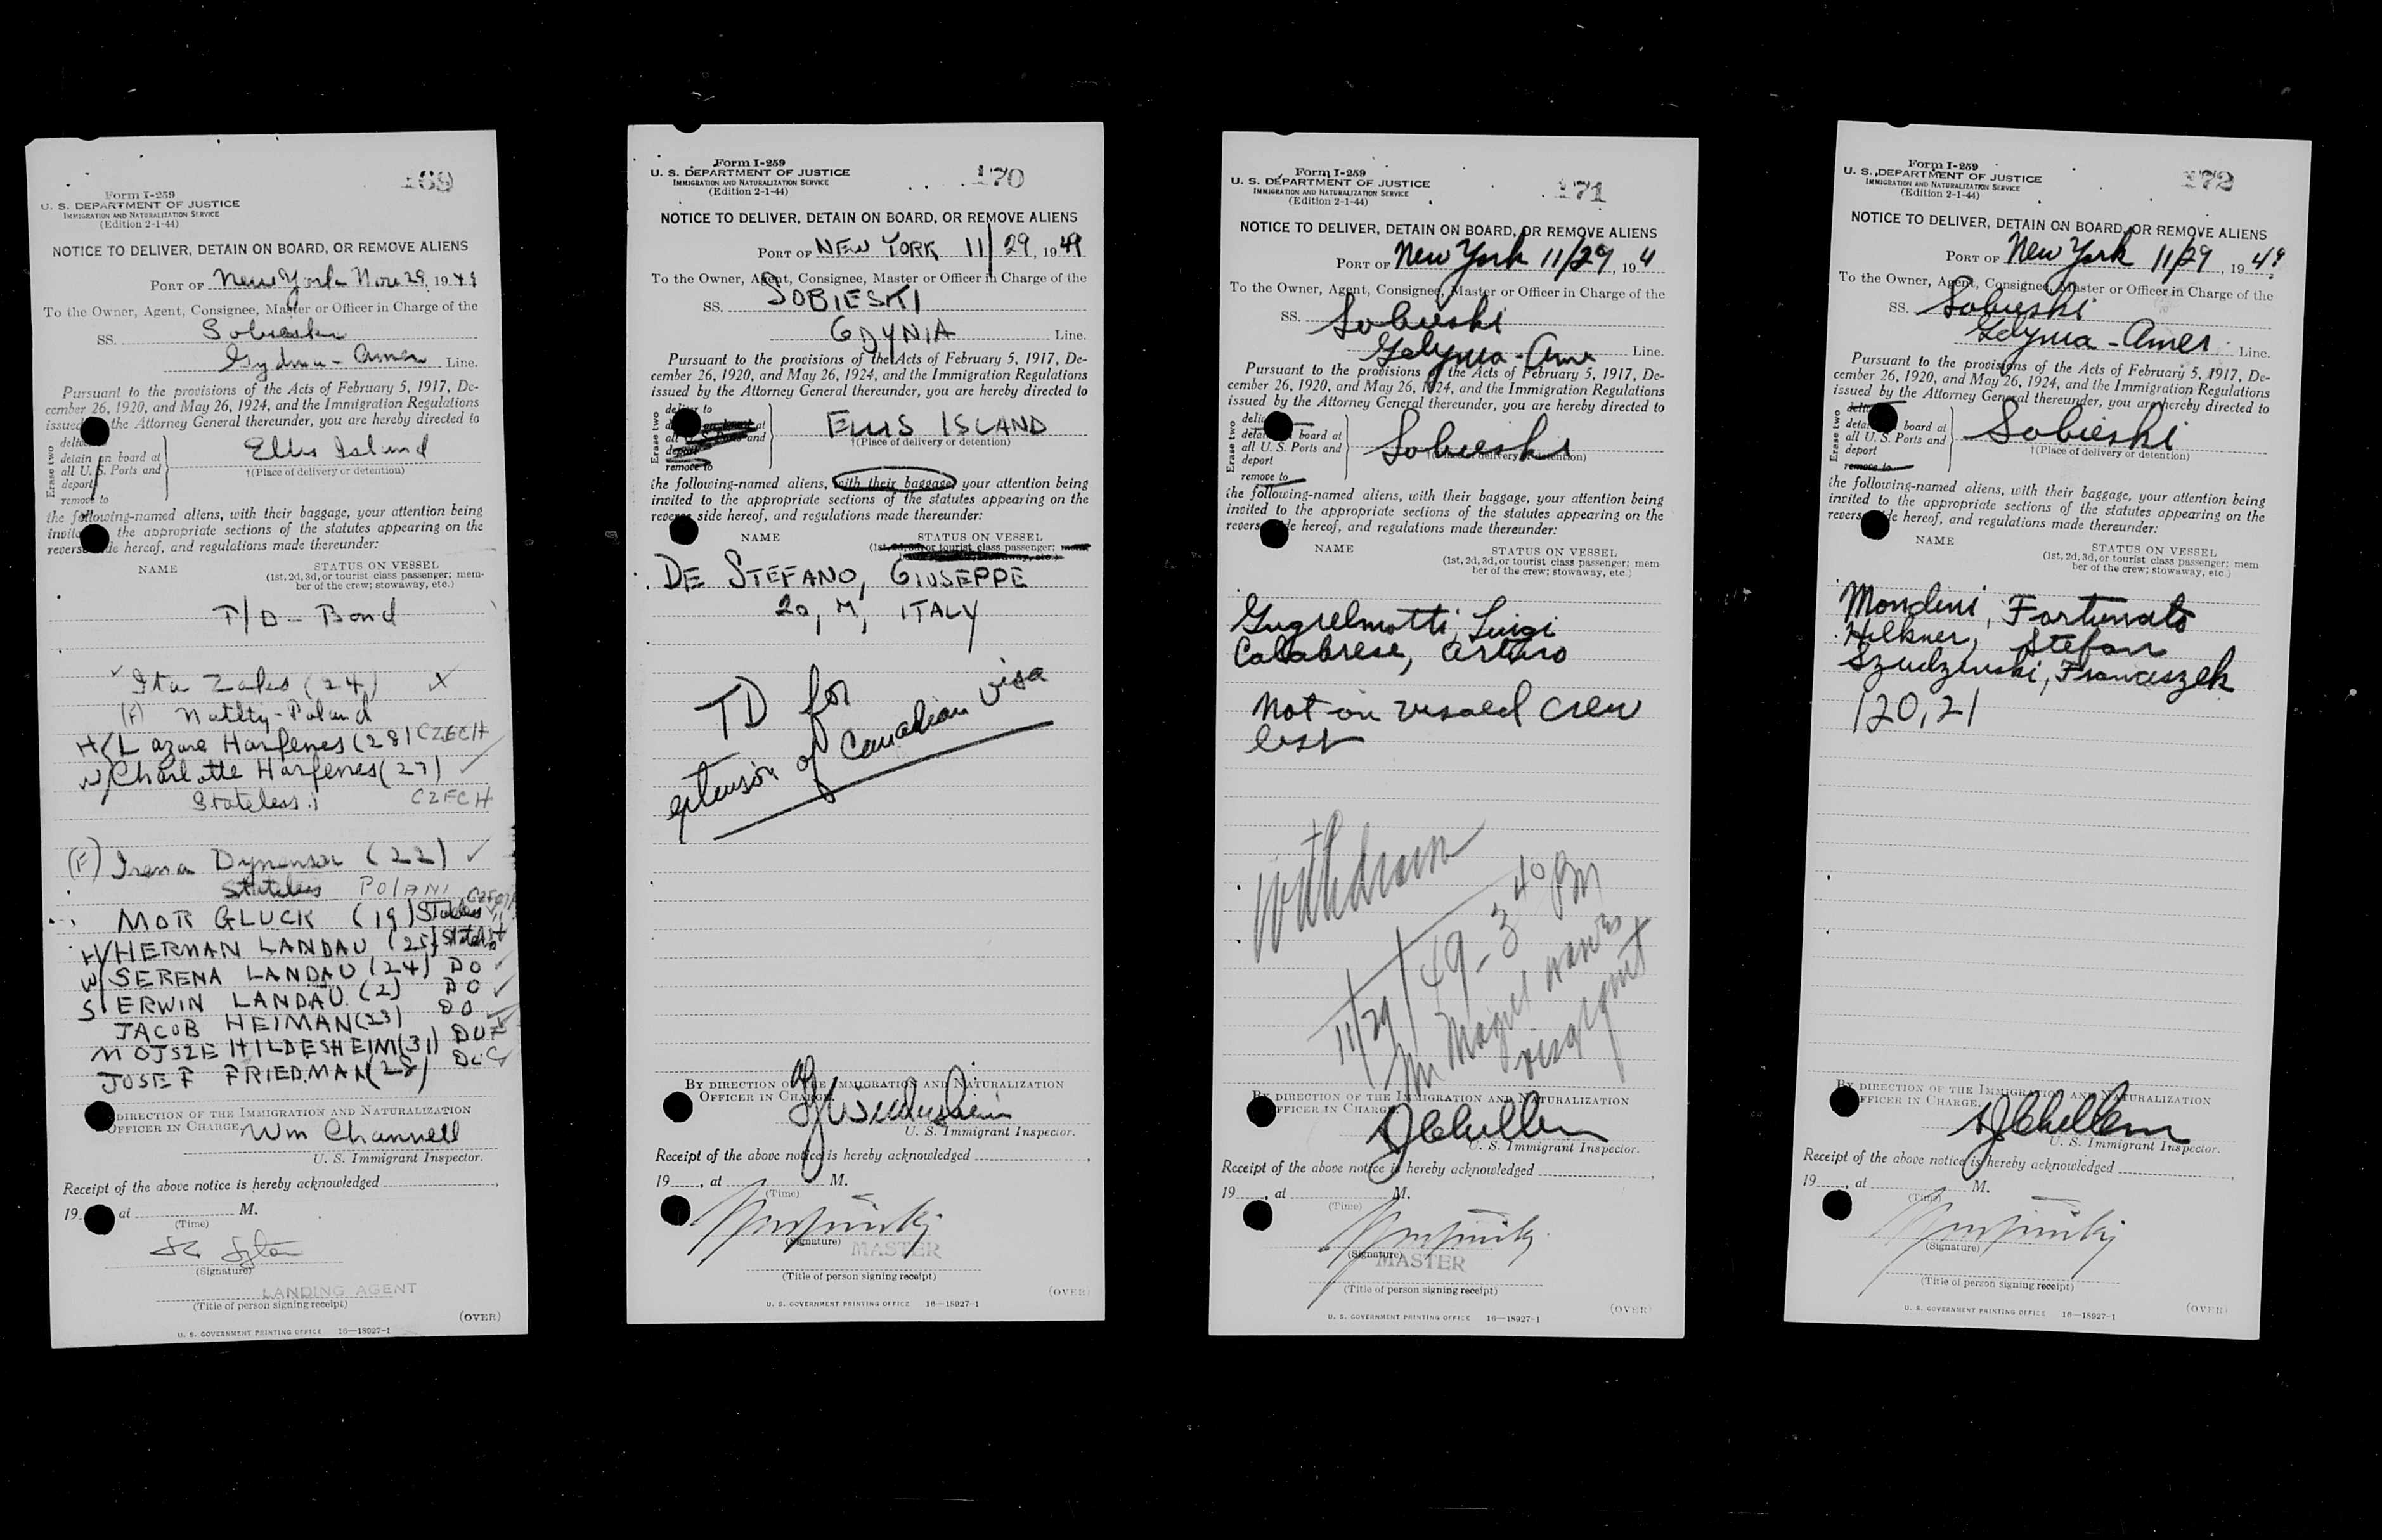 169
Form I-259
U. S. DEPARTMENT OF JUSTICE
IMMIGRATION AND NATURALIZATION SERVICE
(Edition 2-1-44)
NOTICE TO DELIVER, DETAIN ON BOARD, OR REMOVE ALIENS
PORT OF New York Nov 29, 1949
To the Owner, Agent, Consignee, Master or Officer in Charge of the
SS. Sobieski
Gydnia - Amer Line.
Pursuant to the provisions of the Acts of February 5, 1917, De-
cember 26, 1920, and May 26, 1924, and the Immigration Regulations
issued the Attorney General thereunder, you are hereby directed to
Erase two
detain on board at
all U. S. Ports and
deport
remove to
Ellis Island
†(Place of delivery or detention)
the following-named aliens, with their baggage, your attention being
the appropriate sections of the statutes appearing on the
hereof, and regulations made thereunder:
NAME STATUS ON VESSEL
(1st, 2d, 3d, or tourist class passenger; mem-
ber of the crew; stowaway, etc.)
T/D - Bond
Ita Zaks (24) X
(F) Natlty - Poland
H/Lazare Harfenes (28) CZECH
W/Charlotte Harfenes (27) ✓
Stateless CZECH
(F) Irena Dymensu (22) ✓
Stateless POLAND
MOR GLUCK (19) Stateless CZECH
H/HERMAN LANDAU (25)
W/SERENA LANDAU (24) DO ✓
S/ERWIN LANDAU (2) DO ✓
JACOB HEIMAN (23) DO
MOJSZE HILDESHEIM (31) DO
JOSEF FRIEDMAN (28) DO
DIRECTION OF THE IMMIGRATION AND NATURALIZATION
OFFICER IN CHARGE. Wm Channell
U. S. Immigrant Inspector.
Receipt of the above notice is hereby acknowledged
19 at M.
(Time)
(Signature)
LANDING AGENT
(Title of person signing receipt)
(OVER)
U. S. GOVERNMENT PRINTING OFFICE 16—18927-1
170
Form I-259
U. S. DEPARTMENT OF JUSTICE
IMMIGRATION AND NATURALIZATION SERVICE
(Edition 2-1-44)
NOTICE TO DELIVER, DETAIN ON BOARD, OR REMOVE ALIENS
PORT OF NEW YORK 11/29, 1949
To the Owner, Agent, Consignee, Master or Officer in Charge of the
SS. SOBIESKI
GDYNIA Line.
Pursuant to the provisions of the Acts of February 5, 1917, De-
cember 26, 1920, and May 26, 1924, and the Immigration Regulations
issued by the Attorney General thereunder, you are hereby directed to
Erase two
deliver to
remove to
ELLIS ISLAND
†(Place of delivery or detention)
the following-named aliens, with their baggage, your attention being
invited to the appropriate sections of the statutes appearing on the
reverse side hereof, and regulations made thereunder:
NAME STATUS ON VESSEL
or tourist class passenger;
DE STEFANO, GIUSEPPE
20, M, ITALY
TD for
extension of Canadian visa
BY DIRECTION OF THE IMMIGRATION AND NATURALIZATION
OFFICER IN CHARGE.
U. S. Immigrant Inspector.
Receipt of the above notice is hereby acknowledged
19 , at M.
(Time)
(Signature)
MASTER
(Title of person signing receipt)
(OVER)
U. S. GOVERNMENT PRINTING OFFICE 16—18927-1
171
Form I-259
U. S. DEPARTMENT OF JUSTICE
IMMIGRATION AND NATURALIZATION SERVICE
(Edition 2-1-44)
NOTICE TO DELIVER, DETAIN ON BOARD, OR REMOVE ALIENS
PORT OF New York 11/29, 194
To the Owner, Agent, Consignee, Master or Officer in Charge of the
SS. Sobieski
Gdynia - Ame Line.
Pursuant to the provisions of the Acts of February 5, 1917, De-
cember 26, 1920, and May 26, 1924, and the Immigration Regulations
issued by the Attorney General thereunder, you are hereby directed to
Erase two
board at
all U. S. Ports and
deport
remove to
Sobieski
†(Place of delivery or detention)
the following-named aliens, with their baggage, your attention being
invited to the appropriate sections of the statutes appearing on the
hereof, and regulations made thereunder:
NAME STATUS ON VESSEL
(1st, 2d, 3d, or tourist class passenger; mem
ber of the crew; stowaway, etc.)
Gugielmotti, Luigi
Calabrese, Arturo
Not on visaed crew
list
Withdrawn
11/29/49 - 3 40 PM
Mr Magul waives
visa reqmt
BY DIRECTION OF THE IMMIGRATION AND NATURALIZATION
OFFICER IN CHARGE.
U. S. Immigrant Inspector.
Receipt of the above notice is hereby acknowledged
19 , at M.
(Time)
(Signature)
MASTER
(Title of person signing receipt)
(OVER)
U. S. GOVERNMENT PRINTING OFFICE 16—18927-1
172
Form I-259
U. S. DEPARTMENT OF JUSTICE
IMMIGRATION AND NATURALIZATION SERVICE
(Edition 2-1-44)
NOTICE TO DELIVER, DETAIN ON BOARD, OR REMOVE ALIENS
PORT OF New York 11/29, 1949
To the Owner, Agent, Consignee, Master or Officer in Charge of the
SS. Sobieski
Gdynia - Amer Line.
Pursuant to the provisions of the Acts of February 5, 1917, De-
cember 26, 1920, and May 26, 1924, and the Immigration Regulations
issued by the Attorney General thereunder, you are hereby directed to
Erase two
board at
all U. S. Ports and
deport
remove to
Sobieski
†(Place of delivery or detention)
the following-named aliens, with their baggage, your attention being
invited to the appropriate sections of the statutes appearing on the
hereof, and regulations made thereunder:
NAME STATUS ON VESSEL
(1st, 2d, 3d, or tourist class passenger; mem
ber of the crew; stowaway, etc.)
Mondini, Fortunato
Hilkner, Stefan
Szudzinski, Franciszek
120, 21
BY DIRECTION OF THE IMMIGRATION AND NATURALIZATION
OFFICER IN CHARGE.
U. S. Immigrant Inspector.
Receipt of the above notice is hereby acknowledged
19 , at M.
(Time)
(Signature)
(Title of person signing receipt)
(OVER)
U. S. GOVERNMENT PRINTING OFFICE 16—18927-1